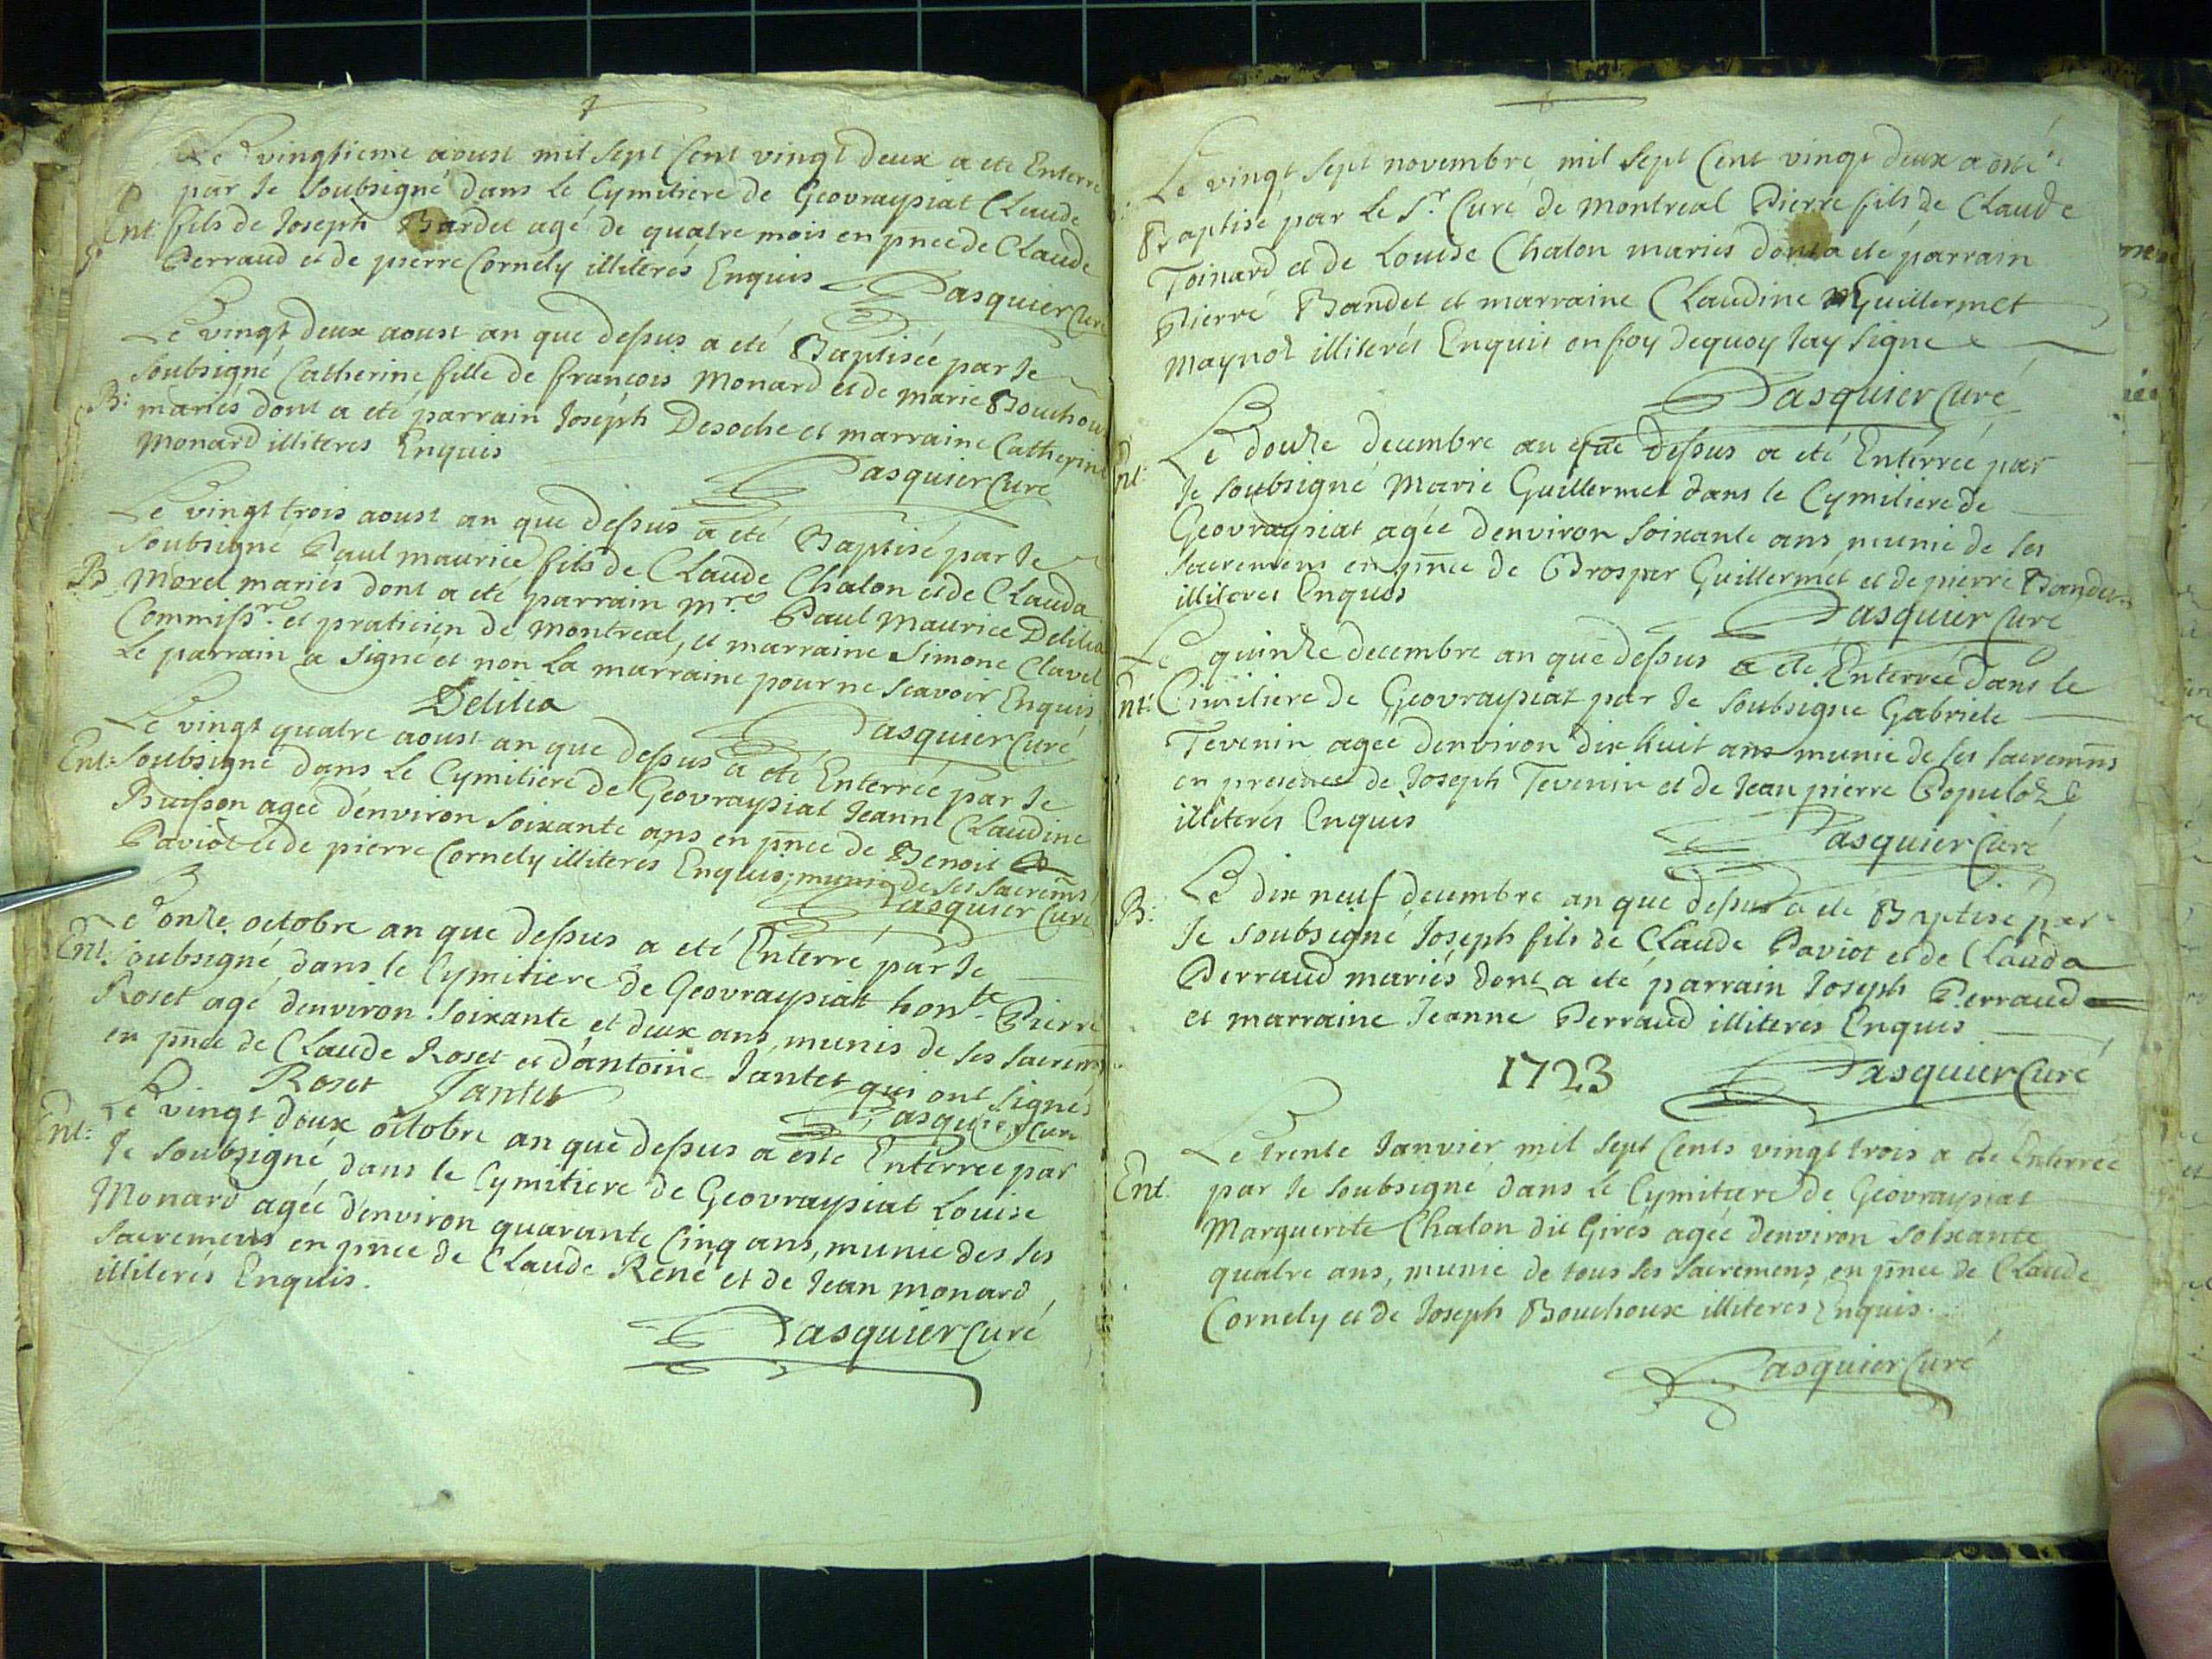 Le vingtieme aoust mil sept Cent vingt deux a eté Enterre
par Je soubsigné dans Le Cymitiere de Geovraysiat CLaude
Ent fils de Joseph Bardet agé de quatre mois en pnce de CLaude
Perraud et de pierre Cornely illiterés Enquis
Pasquier Curé
Le vingt deux aoust an que dessus a eté Baptisée par Je
soubsigné Catherine fille de françois Monard et de marie Bouchoux
B: mariés dont a eté parrain Joseph Desoche et marraine Catherine
Monard illiteres Enquis
Pasquier Curé
Le vingt trois aoust an que dessus a eté Baptisé par Je
soubsigné Paul maurice fils de CLaude Chalon et de CLauda
B. Morel mariés dont a eté parrain mre Paul Maurice Delilia
Commissre et praticien de Montreal, et marraine Simone Clavel
Le parrain a signé et non La marraine pour ne scavoir Enquis
Delilia
Pasquier Curé
Le vingt quatre aoust an que dessus a eté Enterreé par Je
Ent: soubsigné dans Le Cymitiere de Geovraysiat Jeanne CLaudine
Buisson ageé d'environ soixante ans en pnce de Benoit
Paviot et de pierre Cornely illiterés Enquis; munie de ses sacremns
Pasquier Curé
Le onze octobre an que dessus a eté Enterré par Je
Ent. soubsigné dans le Cymitiere de Geovraysiat honte Pierre
Roset agé denviron soixante et deux ans, munis de ses sacrem
en pnce de CLaude Roset et d'antoine Jantet qui ont signés
Roset Jantet
Pasquier Curé
Le vingt deux octobre an que dessus a esté Enterreé par
Ent: Je soubsigné, dans le Cymitiere de Geovraysiat Louise
Monard agée d'environ quarante Cinq ans, munie des ses
sacremens en pnce de CLaude René et de Jean monard
illiterés Enquis.
Pasquier Curé
Le vingt sept novembre mil sept Cent vingt deux a esté
Baptisé par Le Sr. Curé de Montreal Pierre fils de CLaude
Toinard et de Louise Chalon mariés dont a eté parrain
Pierre Bandet et marraine CLaudine Guillermet
Maynot illiterés Enquis en foy dequoy Jay signe
Pasquier Curé
Le douze decembre an que dessus a eté Enterreé par
nt: Je soubsigné Marie Guillermet dans le Cymitiere de
Geovraysiat agée denviron soixante ans munie de ses
sacremens en pnce de Prosper Guillermet et de pierre Bandet
illiteres Enquis
Pasquier Curé
Le quinze decembre an que dessus a eté Enterreé dans le
nt: Cimitiere de Geovraysiat par Je soubsigne Gabriele
Tevenin agée denviron dix huit ans munie de ses sacremns
en presence de Joseph Tevenin et de Jean pierre Populoz
illiterés Enquis
Pasquier Curé
Le dix neuf decembre an que dessus a eté Baptisé par
B: Je soubsigné Joseph fils de CLaude Paviot et de CLauda
Perraud mariés dont a eté parrain Joseph Perraud
et marraine Jeanne Perraud illiteres Enquis
1723
Pasquier Curé
Le trente Janvier mil sept Cents vingt trois a eté Enterreé
Ent. par Je soubsigné dans Le Cymitiere de Géovraysiat
Marguerite Chalon dit Girés agée denviron soixante
quatre ans, munie de tous ses sacremens en pnce de CLaude
Cornely et de Joseph Bouchoux illiterés Enquis.
Pasquier Curé